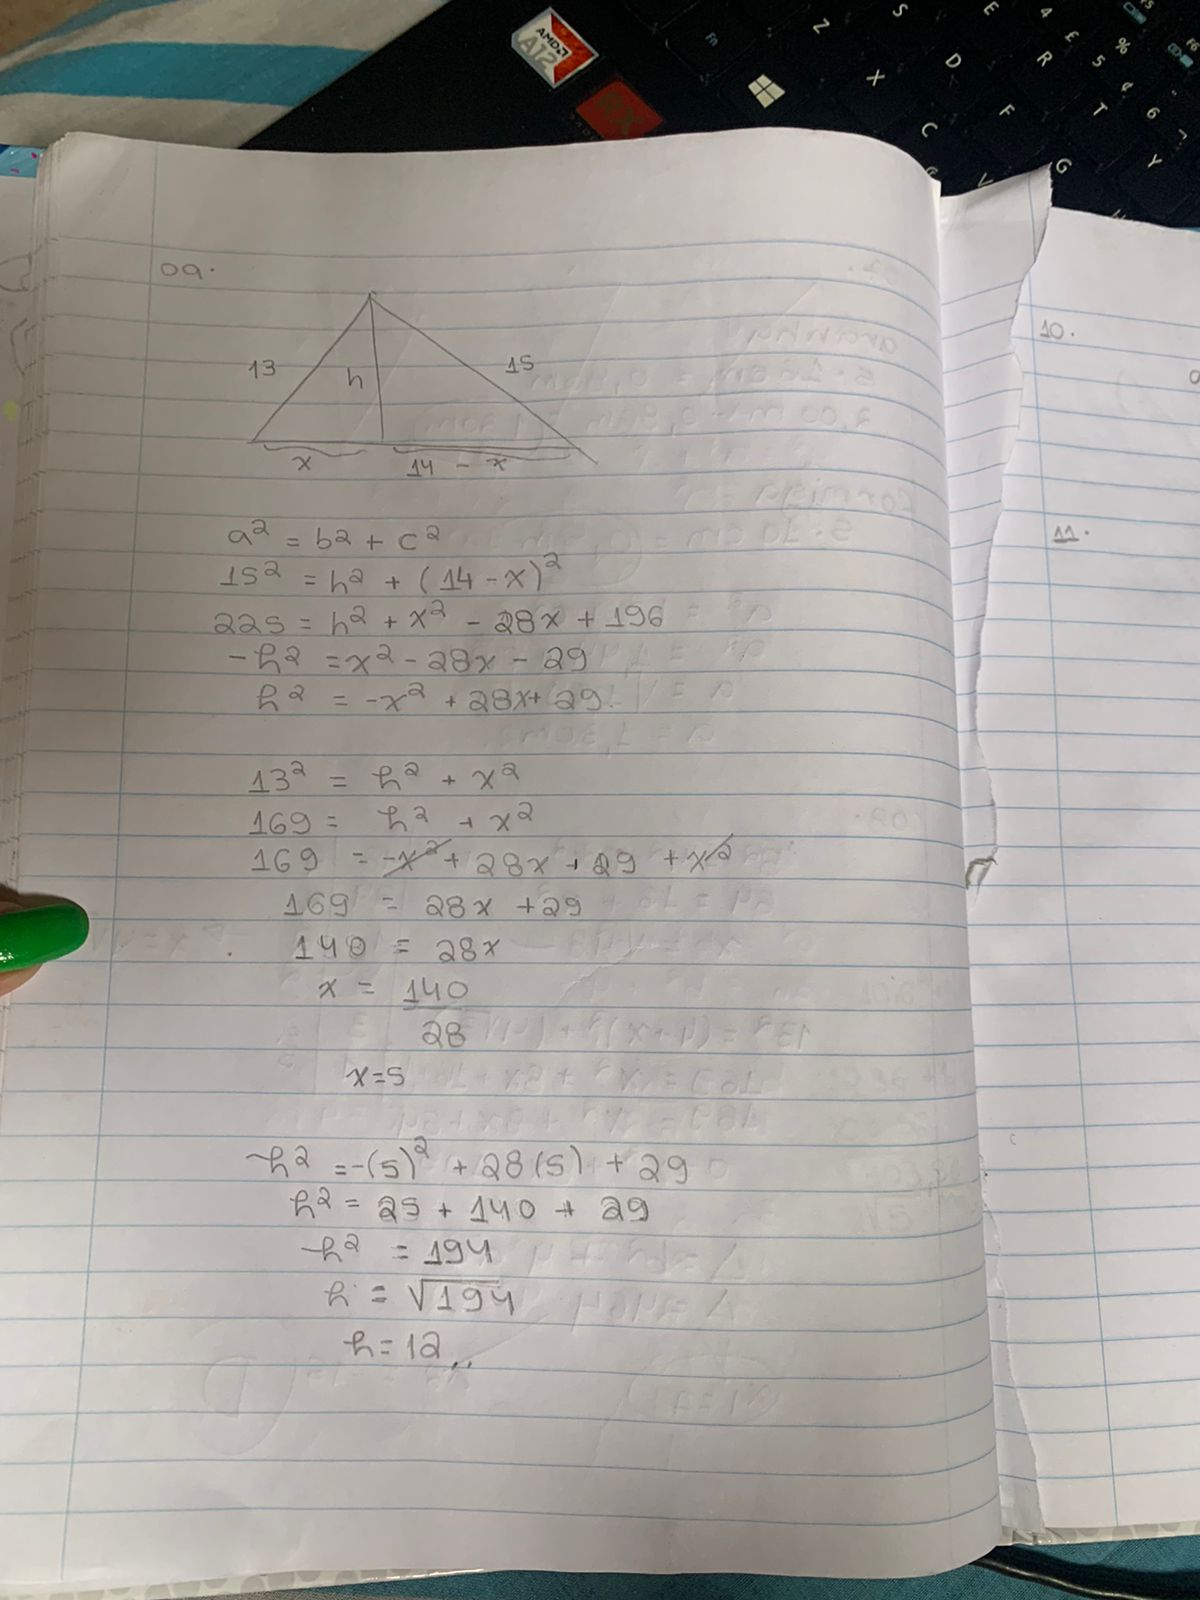 AMD
A12
RX
Fn
Z
S
E
4
%
5
X
D
R
¢
6
C
F
T
7
V
G
Y
09.
13
h
15
x
14 - x
a² = b² + c²
15² = h² + (14 - x)²
225 = h² + x² - 28x + 196
-h² = x² - 28x - 29
h² = -x² + 28x + 29
13² = h² + x²
169 = h² + x²
169 = -x² + 28x + 29 + x²
169 = 28x + 29
140 = 28x
x = 140
28
x = 5
h² = -(5)² + 28(5) + 29
h² = 25 + 140 + 29
h² = 194
h = √194
h = 12
10.
11.